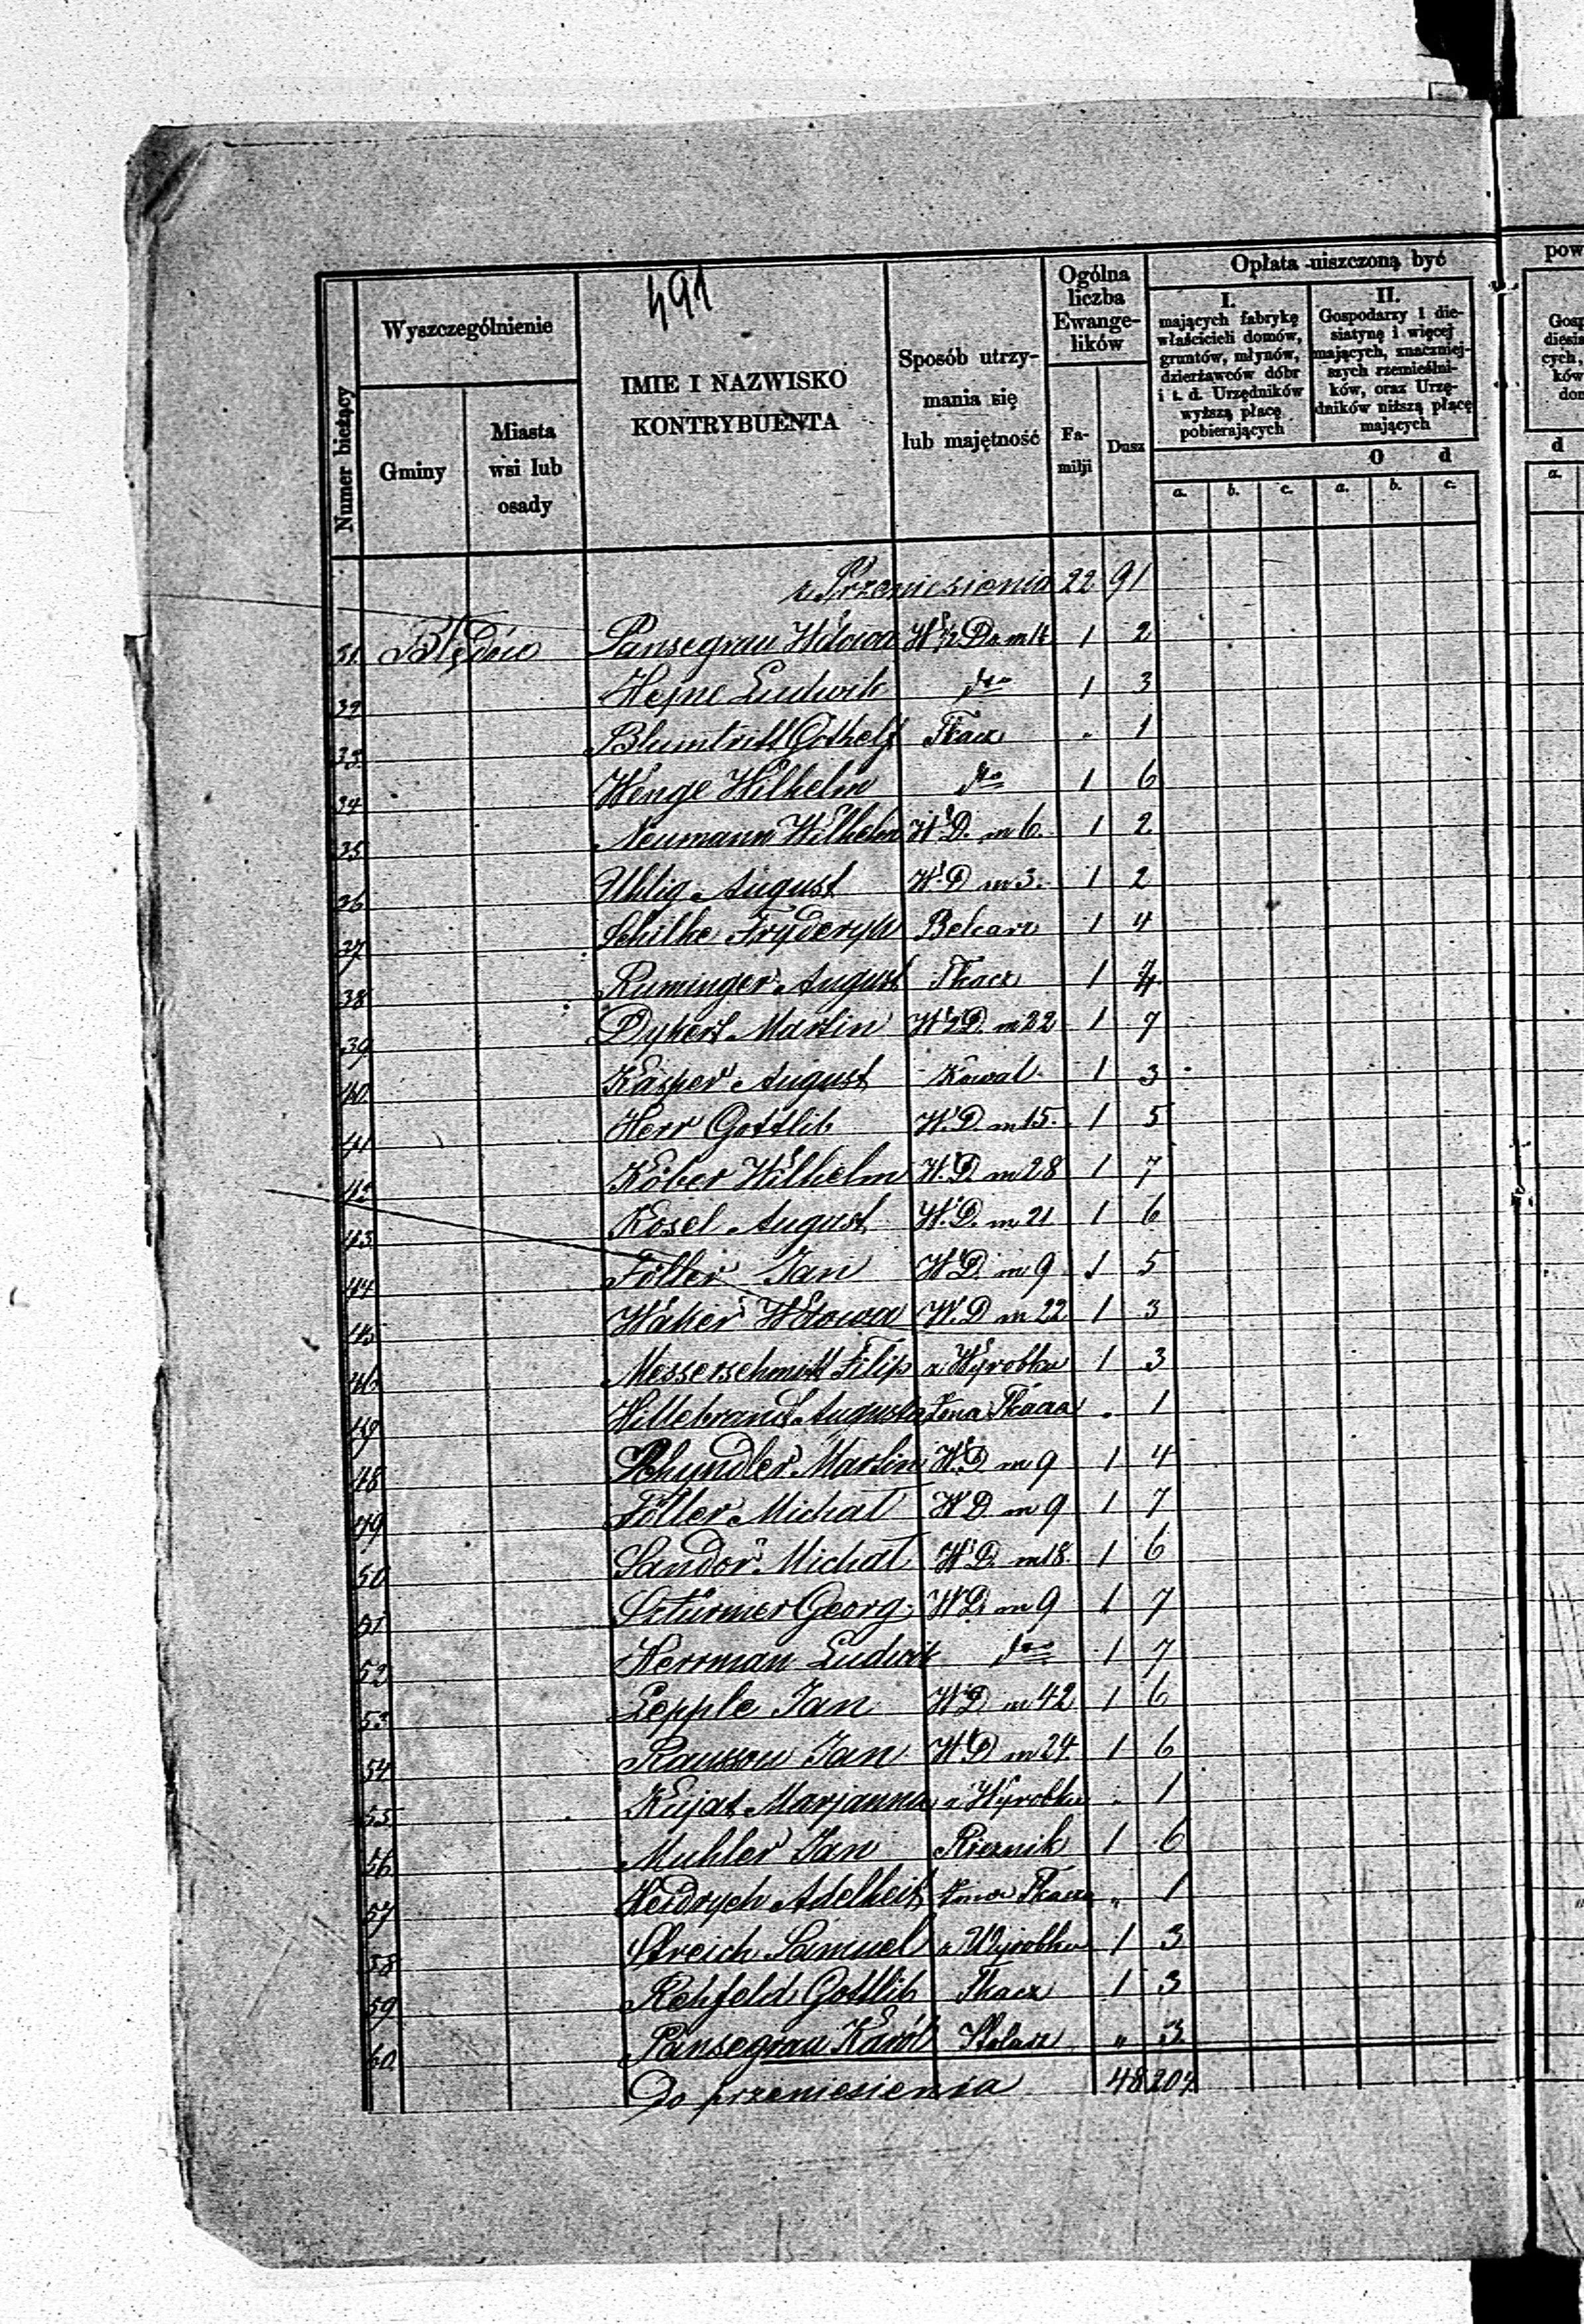 491
Numer bieżący
Wyszczególnienie
Gminy
Miasta
wsi lub
osady
IMIE I NAZWISKO
KONTRYBUENTA
Sposób utrzy-
mania się
lub majętność
Ogólna
liczba
Ewange-
lików
Fa-
milji
Dusz
Opłata uiszczoną być
I.
mających fabrykę
właścicieli domów,
gruntów, młynów,
dzierżawców dóbr
i t. d. Urzędników
wyższą płacę
pobierających
II.
Gospodarzy 1 die-
siatynę i więcej
mających, znaczniej-
szych rzemieślni-
ków, oraz Urzę-
dników niższą płacę
mających
O d
a. b. c. a. b. c.
pow
Gosp
diesia
cych,
ków
don
d
a.
z Przeniesienia 22 91
31 Błędów Pansegrau Wdowa 1 2
32 Hejne Ludwik dto 1 3
33 Blumtritt Gothelf Tkacz " 1
34 Wenge Wilhelm dto 1 6
35 Neumann Wilhelm W.D. m 6. 1 2
36 Uhlig August W.D m 3. 1 2
37 Schilke Fryderyk 1 4
38 Ruminger August Tkacz 1 4
39 Dykert Martin m 22 1 7
40 Kasper August Kowal 1 3
41 Herr Gottlib W.D. m 15. 1 5
42 Köber Wilhelm W.D. m 28 1 7
43 Kosel August W.D. m 21 1 6
44 Föller Jan W.D. m 9 1 5
45 Waker Wdowa W.D m 22 1 3
46 Messerschmitt Filip z Wyrobku 1 3
49 Hillebrand Augusta żona Tkacza " 1
48 Schyndler Martin W.D. m 9 1 4
49 Föller Michał W D m 9 1 7
50 Sandor Michał W.D. m 18. 1 6
51 Sztürmer Georg W D. m 9 1 7
52 Herrman Ludwik dto 1 7
53 Lepple Jan W D m 42 1 6
54 Jan W D m 24. 1 6
55 Kujat Marjanna z Wyrobku " 1
56 Muhler Jan Rzeznik 1 6
57 Heidrych Adelheit żona Tkacza " 1
58 Streich Samuel z Wyrobku 1 3
59 Rehfeld Gottlib Tkacz 1 3
60 Pansegrau Karól Stolarz " 3
Do przeniesienia 48 209